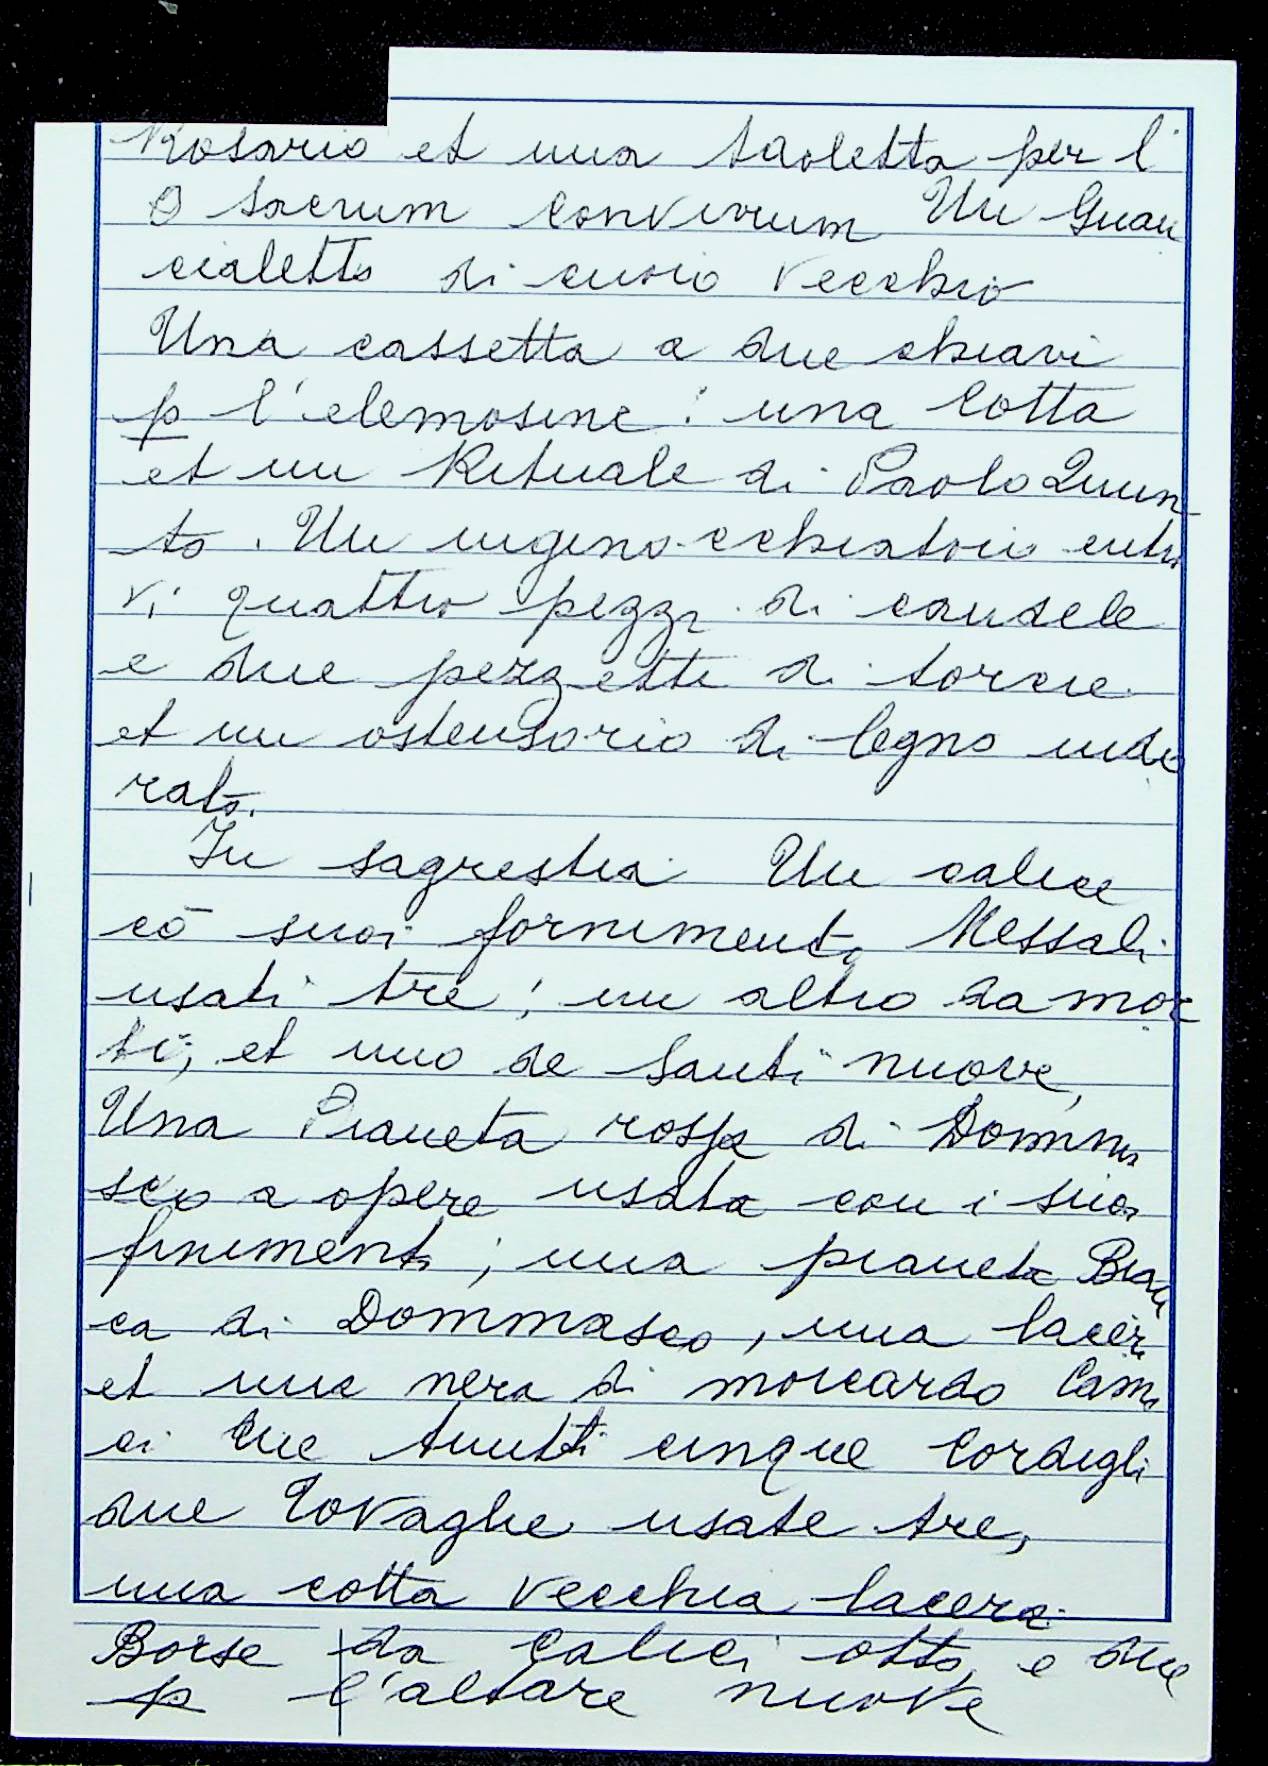 Rosario et una taoletta per l'
O Sacrum Convivium Un Guan
cialetto di cuoio vecchio
Una cassetta a due chiavi
p l'elemosine: una Cotta
et un Rituale di Paolo Quin-
to. Un inginocchiatoio entro
vi quattro pezzi di candele
e due pezzetti di torcie
et un ostensorio di legno indo
rato.
In sagrestia Un calice
cō suoi fornimenti Messali
usati tre; un altro da mor
ti; et uno de Santi nuove,
Una Pianeta rossa di Domma
sco a opere usata con i suoi
finimenti; una pianeta Bian
ca di Dommasco, una lacera
et una nera di moccardo Cami
ci tutti cinque Cordigli
due Tovaglie usate tre,
una cotta vecchia lacera.
Borse da Calici otto, e due
p l'altare nuove